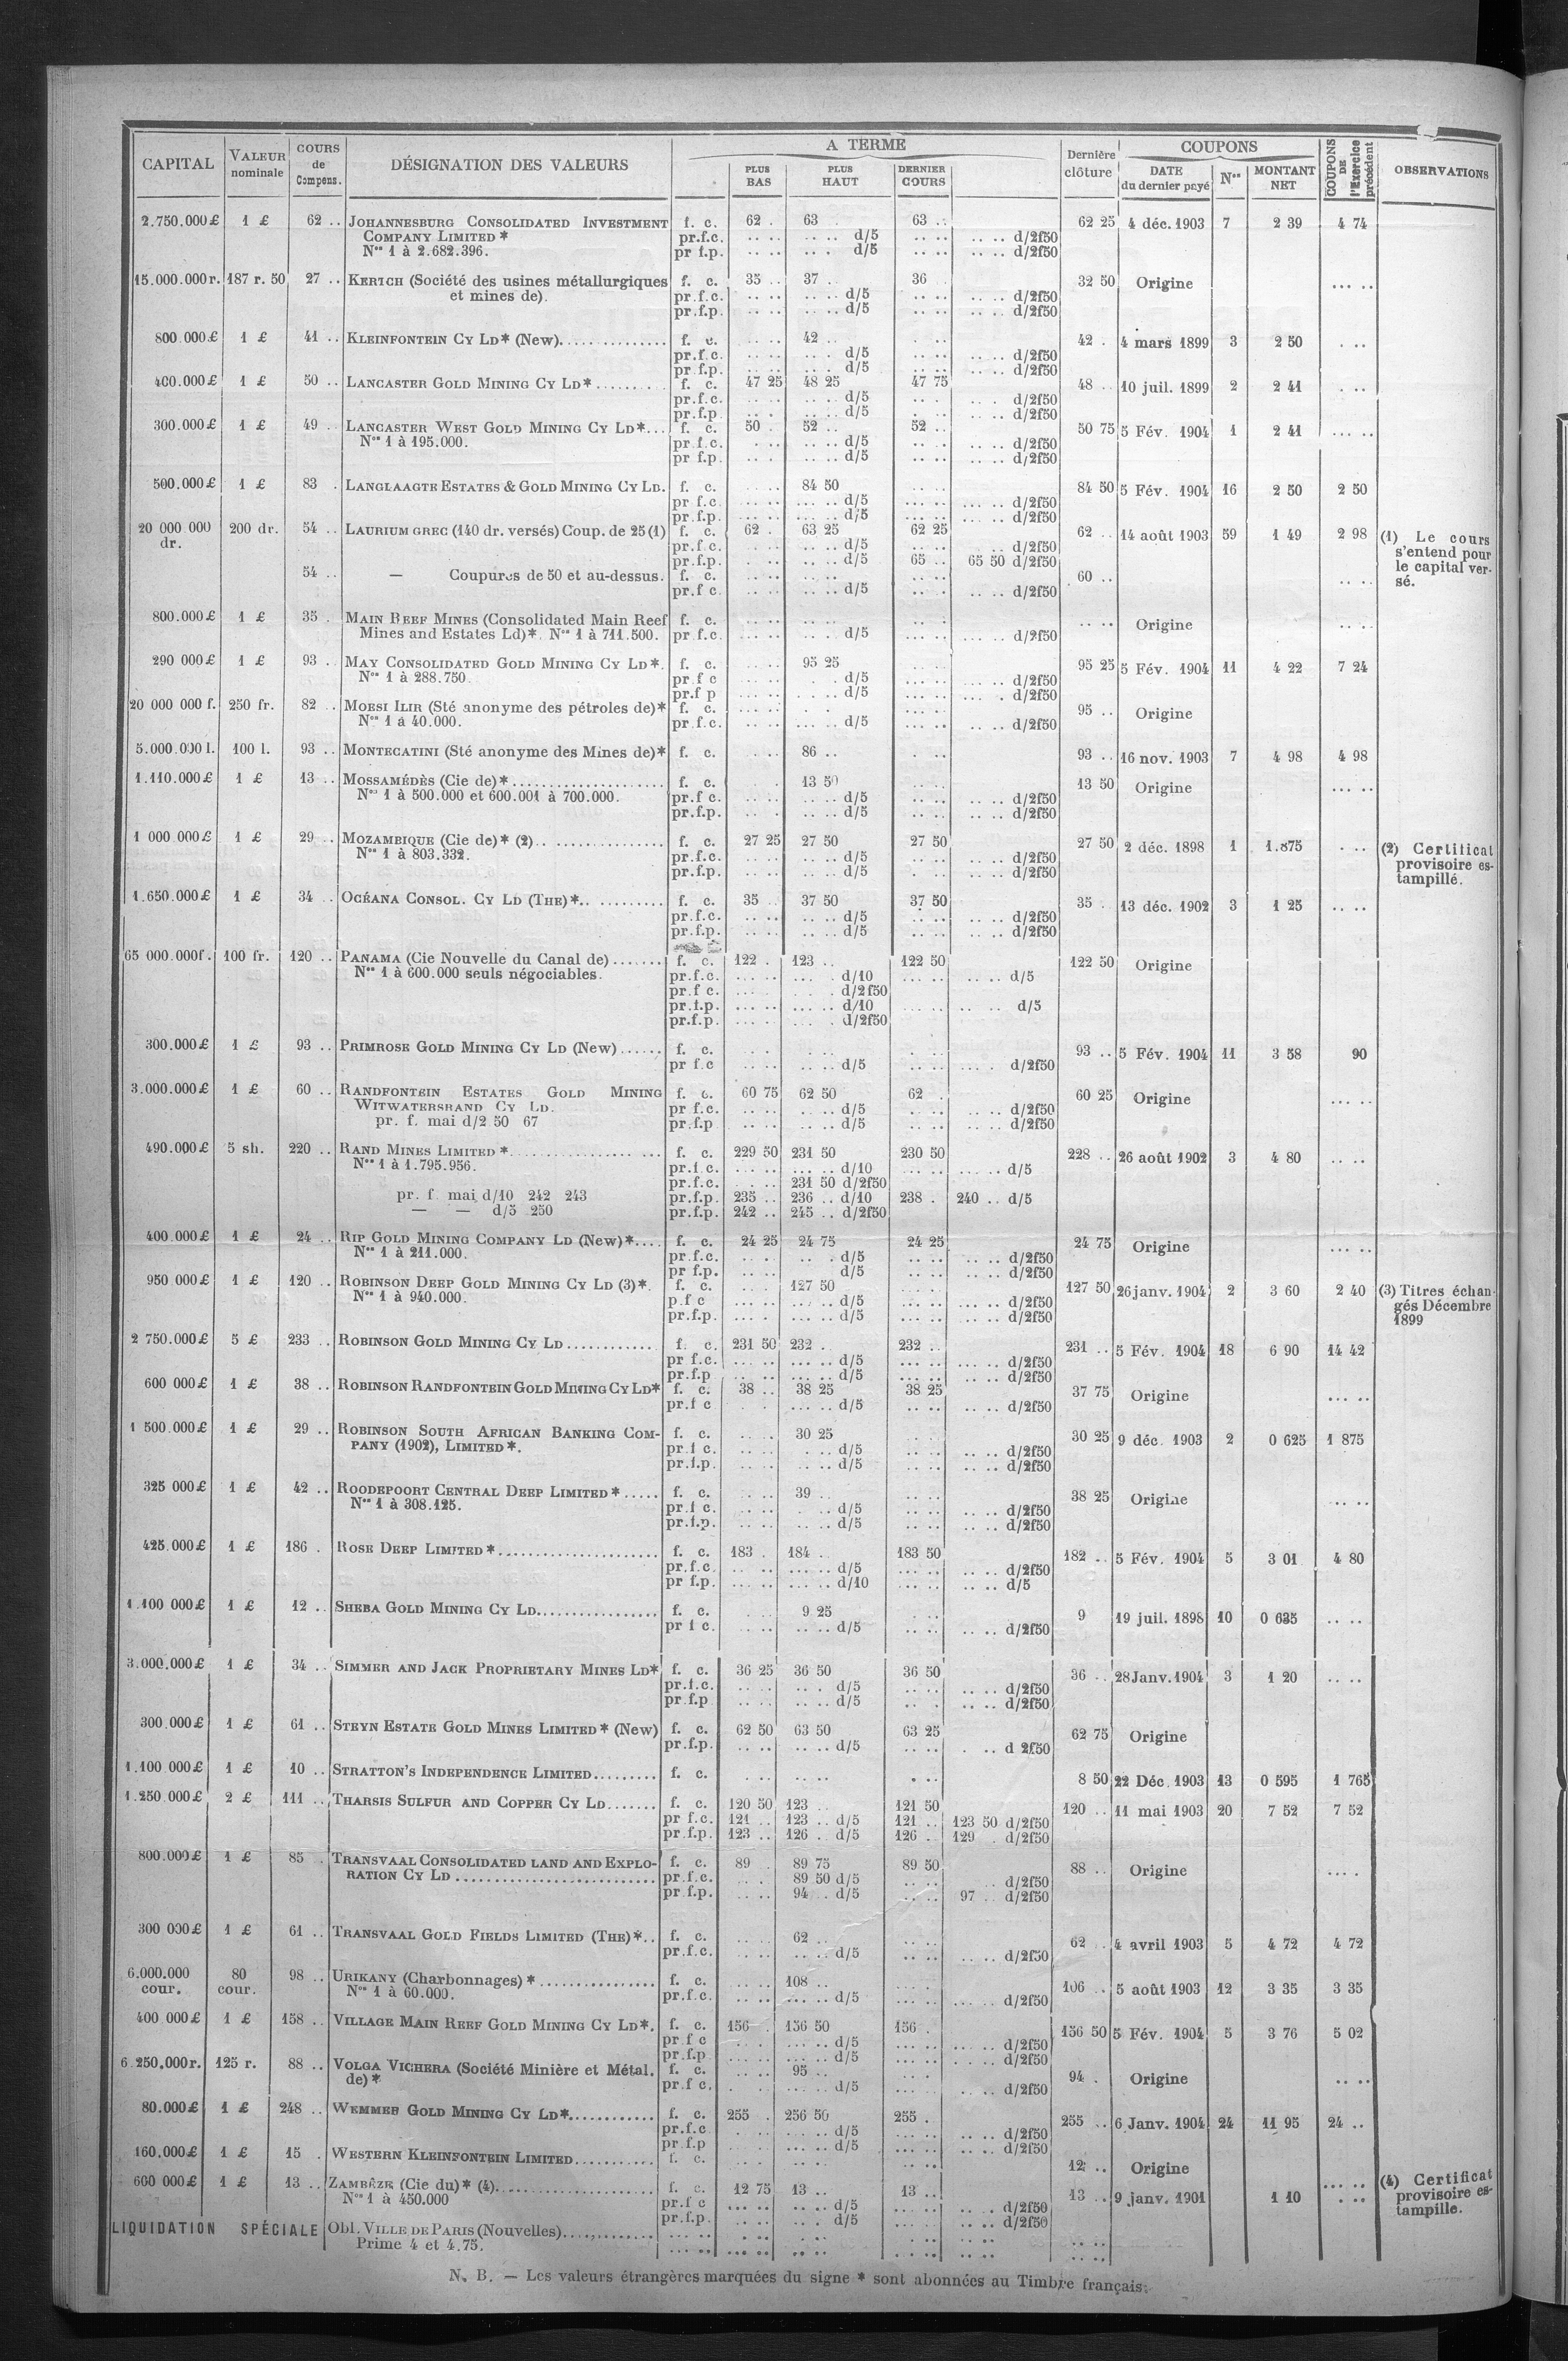 CAPITAL VALEUR nominale COURS de Compens. DÉSIGNATION DES VALEURS A TERME PLUS BAS PLUS HAUT DERNIER COURS Dernière clôture COUPONS DATE du dernier payé Nos MONTANT NET COUPONS DE l'Exercice précédent OBSERVATIONS
2.750.000£ 1 £ 62 .. JOHANNESBURG CONSOLIDATED INVESTMENT f. c. 62 . 63 63 .. 62 25 4 déc. 1903 7 2 39 4 74
COMPANY LIMITED * pr.f.c. .. .. .. .. d/5 .. .. .. .. d/2f50
Nos 1 à 2.682.396. pr f.p. .. .. .. . d/5 .. .. .. .. d/2f50
15.000.000r. 187 r. 50 27 .. KERTCH (Société des usines métallurgiques f. c. 35 .. 37 .. 36 32 50 Origine ... ..
et mines de). pr.f.c. .. .. .. .. d/5 d/2f50
pr.f.p. .. .. .. .. d/5 .. .. .. .. d/2f50
800.000£ 1 £ 41 .. KLEINFONTEIN CY LD* (New). f. c. 42 .. 42 . 4 mars 1899 3 2 50 . ..
pr.f.c. d/5 d/2f50
pr.f.p. d/5 d/2f50
400.000£ 1 £ 50 .. LANCASTER GOLD MINING CY LD* f. c. 47 25 48 25 47 75 48 .. 10 juil. 1899 2 2 41 . ..
pr.f.c. d/5 d/2f50
pr.f.p. d/5 d/2f50
300.000£ 1 £ 49 .. LANCASTER WEST GOLD MINING CY LD*... f. c. 50 . 52 .. 52 .. 50 75 5 Fév. 1904 1 2 41 ... ..
Nos 1 à 195.000. pr.f.c. d/5 d/2f50
pr f.p. d/5 d/2f50
500.000£ 1 £ 83 . LANGLAAGTE ESTATES & GOLD MINING CY LD. f. c. 84 50 84 50 5 Fév. 1904 16 2 50 2 50
pr f.c. d/5 d/2f50
pr.f.p. d/5 d/2f50
20 000 000 200 dr. 54 .. LAURIUM GREC (140 dr. versés) Coup. de 25 (1) f. c. 62 . 63 25 62 25 62 .. 14 août 1903 59 1 49 2 98 (1) Le cours
dr. pr.f.c. d/5 d/2f50 s'entend pour
pr.f.p. d/5 65 .. 65 50 d/2f50 le capital ver-
54 .. — Coupures de 50 et au-dessus. f. c. 60 .. sé.
pr.f c. d/5 d/2f50
800.000£ 1 £ 35 . MAIN REEF MINES (Consolidated Main Reef f. c. .. .. Origine .. ..
Mines and Estates Ld)*. Nos 1 à 711.500. pr f.c. d/5 d/2f50
290 000£ 1 £ 93 . MAY CONSOLIDATED GOLD MINING CY LD*. f. c. 95 25 95 25 5 Fév. 1904 11 4 22 7 24
Nos 1 à 288.750. pr.f c d/5 d/2f50
pr.f p d/5 d/2f50
20 000 000 f. 250 fr. 82 .. MOESI ILIR (Sté anonyme des pétroles de)* f. c. 95 .. Origine
Nos 1 à 40.000. pr.f.c. d/5 d/2f50
5.000.000 l. 100 l. 93 .. MONTECATINI (Sté anonyme des Mines de)* f. c. 86 .. 93 .. 16 nov. 1903 7 4 98 4 98
1.110.000£ 1 £ 13 .. MOSSAMÉDÈS (Cie de)* f. c. 13 50 13 50 Origine ... ..
Nos 1 à 500.000 et 600.001 à 700.000. pr.f c. d/5 d/2f50
pr.f.p. d/5 d/2f50
1 000 000£ 1 £ 29 .. MOZAMBIQUE (Cie de)* (2) f. c. 27 25 27 50 27 50 27 50 2 déc. 1898 1 1.875 . .. (2) Certificat
Nos 1 à 803.332. pr.f.c. d/5 d/2f50 provisoire es-
pr.f.p. d/5 d/2f50 tampillé.
1.650.000£ 1 £ 34 .. OCÉANA CONSOL. CY LD (THE)*.. f. c. 35 .. 37 50 37 50 35 . 13 déc. 1902 3 1 25 .. ..
pr.f.c. d/5 d/2f50
pr.f.p. d/5 d/2f50
65 000.000f. 100 fr. 120 .. PANAMA (Cie Nouvelle du Canal de) f. c. 122 . 123 .. 122 50 122 50 Origine
Nos 1 à 600.000 seuls négociables. pr.f.c. d/10 d/5
pr.f c. d/2f50
pr.f.p. d/10 d/5
pr.f.p. d/2f50
300.000£ 1 £ 93 .. PRIMROSE GOLD MINING CY LD (New) f. c. 93 .. 5 Fév. 1904 11 3 58 90
pr f.c d/5 d/2f50
3.000.000£ 1 £ 60 .. RANDFONTEIN ESTATES GOLD MINING f. c. 60 75 62 50 62 60 25 Origine ... ..
WITWATERSRAND CY LD. pr f.c. d/5 d/2f50
pr. f. mai d/2 50 67 pr.f.p d/5 d/2f50
490.000£ 5 sh. 220 .. RAND MINES LIMITED * f. c. 229 50 231 50 230 50 228 .. 26 août 1902 3 4 80 .. ..
Nos 1 à 1.795.956. pr.f.c. d/10 d/5
pr.f.c. 231 50 d/2f50
pr. f. mai d/10 242 243 pr.f.p. 235 .. 236 .. d/10 238 . 240 .. d/5
— — d/5 250 pr.f.p. 242 .. 245 .. d/2f50
400.000£ 1 £ 24 .. RIP GOLD MINING COMPANY LD (New)*.... f. c. 24 25 24 75 24 25 24 75 Origine ... ..
Nos 1 à 211.000. pr.f.c. d/5 d/2f50
pr f.p. d/5 d/2f50
950 000£ 1 £ 120 .. ROBINSON DEEP GOLD MINING CY LD (3)*. f. c. 127 50 127 50 26 janv. 1904 2 3 60 2 40 (3) Titres échan-
Nos 1 à 940.000. p.f c d/5 d/2f50 gés Décembre
pr.f.p. d/5 d/2f50 1899
2 750.000£ 5 £ 233 .. ROBINSON GOLD MINING CY LD f. c. 231 50 232 . 232 .. 231 .. 5 Fév. 1904 18 6 90 14 42
pr f.c. d/5 d/2f50
pr.f.p d/5 d/2f50
600 000£ 1 £ 38 .. ROBINSON RANDFONTEIN GOLD MINING CY LD* f. c. 38 .. 38 25 38 25 37 75 Origine ... ..
pr.f c d/5 d/2f50
1 500.000£ 1 £ 29 .. ROBINSON SOUTH AFRICAN BANKING COM- f. c. 30 25 30 25 9 déc. 1903 2 0 625 1 875
PANY (1902), LIMITED*. pr.f c. d/5 d/2f50
pr.f.p. d/5 d/2f50
325 000£ 1 £ 42 .. ROODEPOORT CENTRAL DEEP LIMITED * f. c. 39 .. 38 25 Origine .. ..
Nos 1 à 308.125. pr.f c. d/5 d/2f50
pr.f.p. d/5 d/2f50
425.000£ 1 £ 186 . ROSE DEEP LIMITED * f. c. 183 . 184 . 183 50 182 .. 5 Fév. 1904 5 3 01 4 80
pr.f.c. d/5 d/2f50
pr f.p. d/10 d/5
1.100 000£ 1 £ 12 .. SHEBA GOLD MINING CY LD. f. c. 9 25 9 19 juil. 1898 10 0 635 .. ..
pr f c. d/5 d/2f50
3.000.000£ 1 £ 34 .. SIMMER AND JACK PROPRIETARY MINES LD* f. c. 36 25 36 50 36 50 36 .. 28 Janv. 1904 3 1 20 .. ..
pr.f.c. d/5 d/2f50
pr.f.p d/5 d/2f50
300.000£ 1 £ 61 .. STEYN ESTATE GOLD MINES LIMITED* (New) f. c. 62 50 63 50 63 25 62 75 Origine
pr.f.p. d/5 d 2f50
1.100 000£ 1 £ 10 .. STRATTON'S INDEPENDENCE LIMITED f. c. 8 50 22 Déc. 1903 13 0 595 1 765
1.250.000£ 2 £ 111 .. THARSIS SULFUR AND COPPER CY LD f. c. 120 50 123 .. 121 50 120 .. 11 mai 1903 20 7 52 7 52
pr f.c. 121 .. 123 .. d/5 121 .. 123 50 d/2f50
pr.f.p. 123 .. 126 .. d/5 126 .. 129 . d/2f50
800.000£ 1 £ 85 . TRANSVAAL CONSOLIDATED LAND AND EXPLO- f. c. 89 . 89 75 89 50 88 .. Origine
RATION CY LD pr.f.c. 89 50 d/5 d/2f50
pr f.p. 94 .. d/5 97 .. d/2f50
300 000£ 1 £ 61 .. TRANSVAAL GOLD FIELDS LIMITED (THE)*.. f. c. 62 .. 62 .. 4 avril 1903 5 4 72 4 72
pr.f.c. d/5 d/2f50
6.000.000 80 98 .. URIKANY (Charbonnages) * f. c. 108 .. 106 .. 5 août 1903 12 3 35 3 35
cour. cour. Nos 1 à 60.000. pr.f.c. d/5 d/2f50
400 000£ 1 £ 158 .. VILLAGE MAIN REEF GOLD MINING CY LD*. f. c. 156 156 50 156 . 156 50 5 Fév. 1904 5 3 76 5 02
pr.f c d/5 d/2f50
pr.f.p d/5 d/2f50
6 250.000r. 125 r. 88 .. VOLGA VICHERA (Société Minière et Métal. f. c. 95 .. 94 . Origine .. ..
de)* pr.f c. d/5 d/2f50
80.000£ 1 £ 248 .. WEMMER GOLD MINING CY LD* f. c. 255 . 256 50 255 . 255 .. 6 Janv. 1904 24 11 95 24 ..
pr.f.c d/5 d/2f50
pr f.p d/5 d/2f50
160.000£ 1 £ 15 . WESTERN KLEINFONTEIN LIMITED f. c. 12 .. Origine
600 000£ 1 £ 13 .. ZAMBÈZE (Cie du)* (4) f. c. 12 75 13 .. 13 .. 13 .. 9 janv. 1901 1 10 . .. (4) Certificat
Nos 1 à 450.000 pr.f c d/5 d/2f50 provisoire es-
pr.f.p. d/5 d/2f50 tampille.
LIQUIDATION SPÉCIALE Obl. VILLE DE PARIS (Nouvelles)
Prime 4 et 4.75.
N. B. — Les valeurs étrangères marquées du signe * sont abonnées au Timbre français.